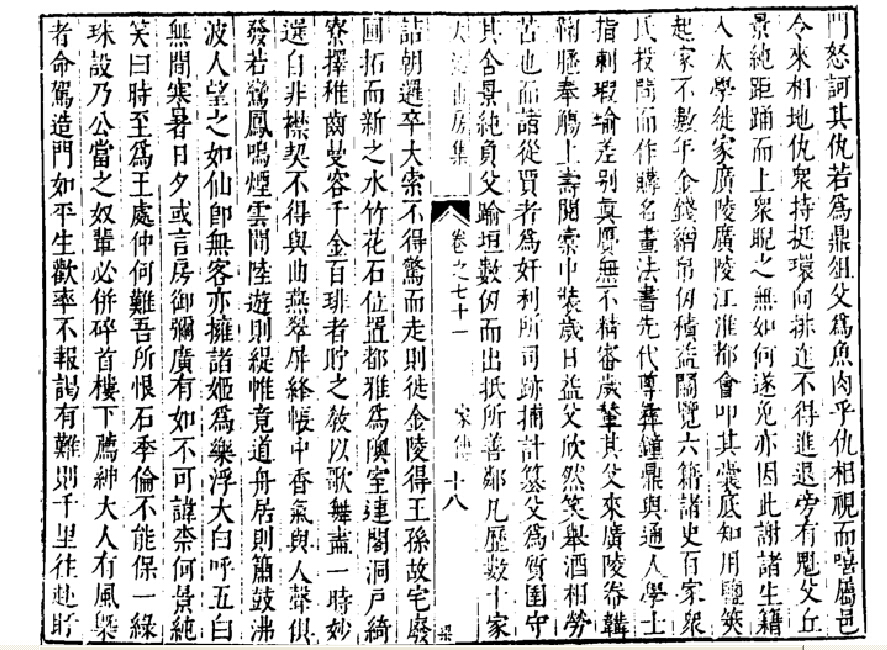 門怒訶其仇若為鼎俎父為魚肉乎仇相視而嘻屬邑
令來相地仇衆持挺環伺排進不得進退旁有鬼父丘
景純距踊而上衆睨之無如何遂免亦因此謝諸生籍
入太學徙家廣陵廣陵江淮都會叩其橐底知用鹽筴
起家不數年金錢縉帛仞積益閱覽六籍諸史百家衆
氏投間而作購名畫法書先代尊彝鐘鼎與通人學士
指刺瑕瑜差別真贋無不精審歲輦其父來廣陵帣韝
鞠𦜕奉觴上壽閱橐中裝歲日益父欣然笑舉酒相勞
苦也而諸從賈者為奸利所司跡捕計簿父為質圍守
其舍景純負父踰垣數仞而出抵所善鄰凡歷數十家
大泌山房集
卷之七十一
家傳
十八
詰朝邏卒大索不得驚而走則徙金陵得王孫故宅廢
圃拓而新之水竹花石位置都雅為隩室連閣洞戶綺
寮擇稚齒曼容千金百琲者貯之敎以歌舞盡一時妙
選自非襟契不得與曲燕翠屏絳帳中香氣與人聲俱
發若鸞鳳鳴煙雲間陸遊則緹帷竟道舟居則簫鼓沸
波人望之如仙卽無客亦擁諸姬為樂浮大白呼五白
無間寒暑日夕或言房御彌廣有如不可諱柰何景純
笑曰時至為王處仲何難吾所恨石季倫不能保一綠
珠設乃公當之奴輩必併碎首樓下薦紳大人有風槩
者命駕造門如平生歡率不報謁有難則千里往赴盱